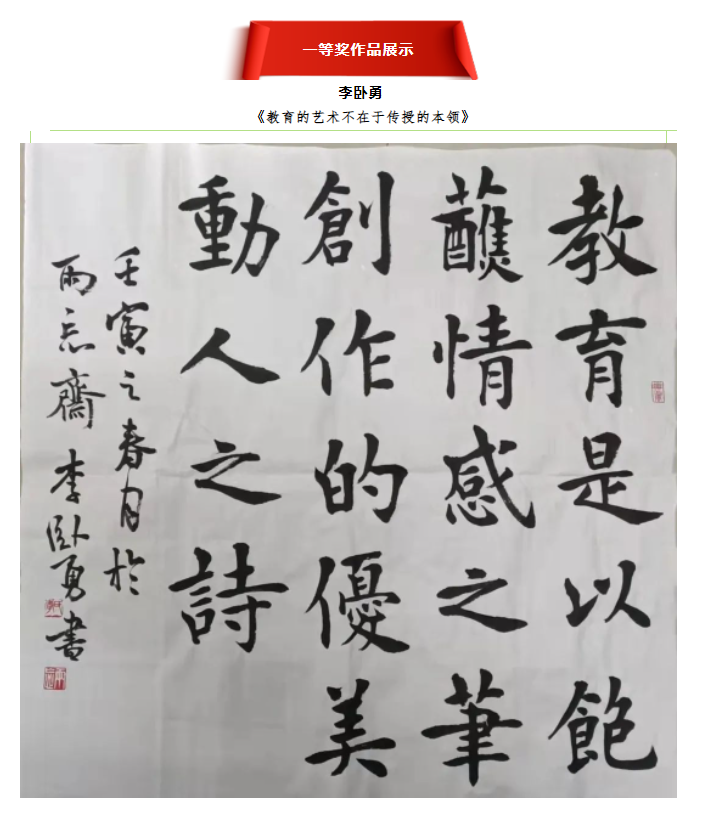 一等奖作品展示
李卧勇
《教育的艺术不在于传授的本领》
教育是以飽
蘸情感之筆
創作的優美
動人之詩
壬寅之春月於
雨忘齋李卧勇書